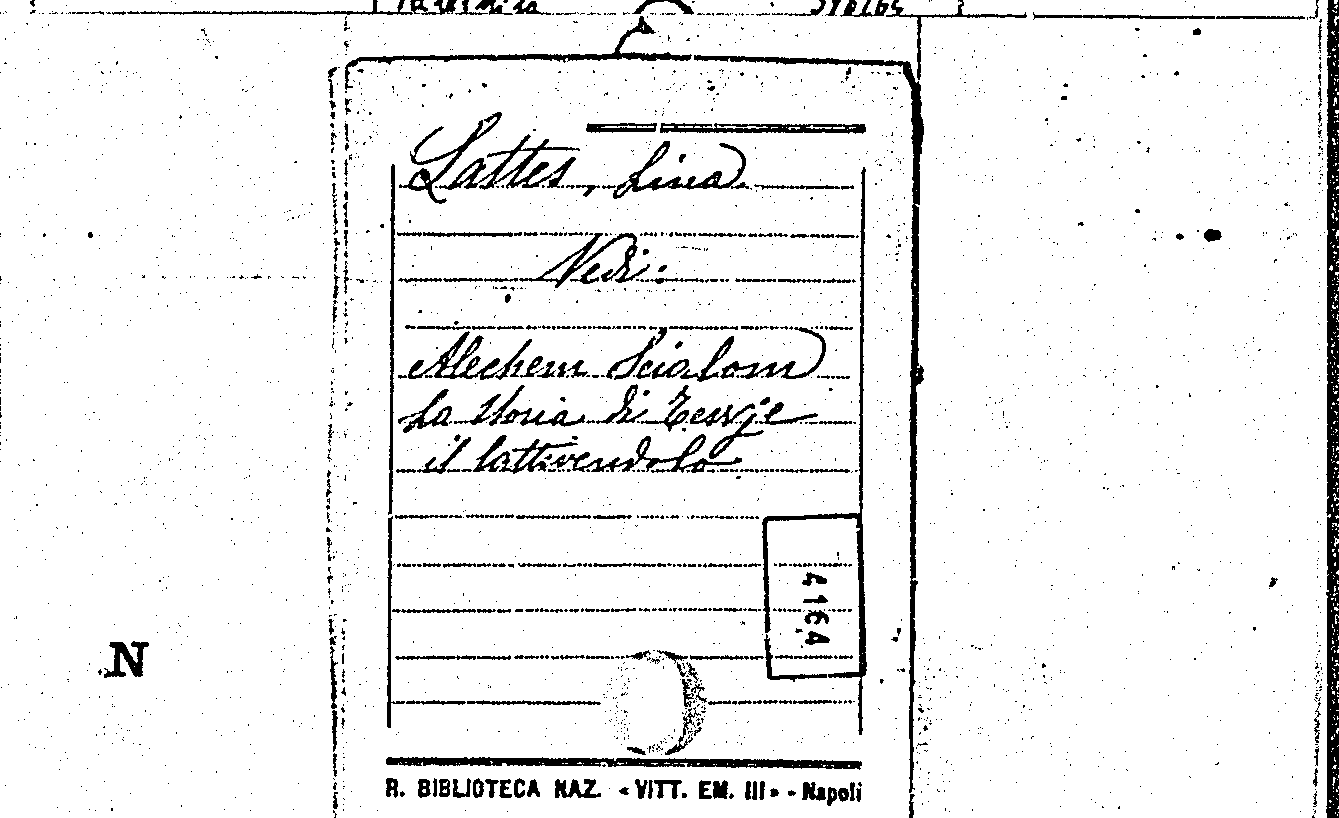 Lattes, Lina.
Vedi:
Alechem Scialom
La storia di Tewje
il lattivendolo.
4164
N
R. BIBLIOTECA NAZ. «VITT. EM. III» - Napoli